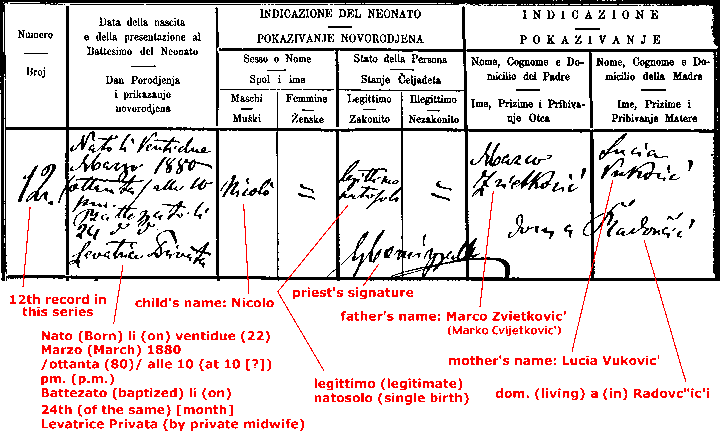 Numero
Broj
Data della nascita
e della presentazione al
Battesimo del Neonato
Dan Porodjenja
i prikazanje
novorodjena
INDICAZIONE DEL NEONATO
POKAZIVANJE NOVORODJENA
Sesso o Nome
Spol i ime
Maschi
Muški
Femmine
Ženske
Stato della Persona
Stanje Čeljadeta
Legittimo
Zakonito
Illegittimo
Nezakonito
INDICAZIONE
POKAZIVANJE
Nome, Cognome e Do-
micilio del Padre
Ime, Prizime i Pribiva-
nje Otca
Nome, Cognome e Do-
micilio della Madre
Ime, Prizime i
Pribivanje Matere
12.
Nato li Ventidue
Marzo 1880
/ottanta/ alle 10
pm
Battezzato li
24 d d
Levatrice Privata
Nicolò
=
legittimo
natosolo
=
Marco
Zvietković
Lucia
Vuković
dom a Radovčić
12th record in
this series
child's name: Nicolo
priest's signature
father's name: Marco Zvietkovic'
(Marko Cvijetkovic')
mother's name: Lucia Vukovic'
Nato (Born) li (on) ventidue (22)
Marzo (March) 1880
/ottanta (80)/ alle 10 (at 10 [?])
pm. (p.m.)
Battezato (baptized) li (on)
24th (of the same) [month]
Levatrice Privata (by private midwife)
legittimo (legitimate)
natosolo (single birth)
dom. (living) a (in) Radovc"ic'i